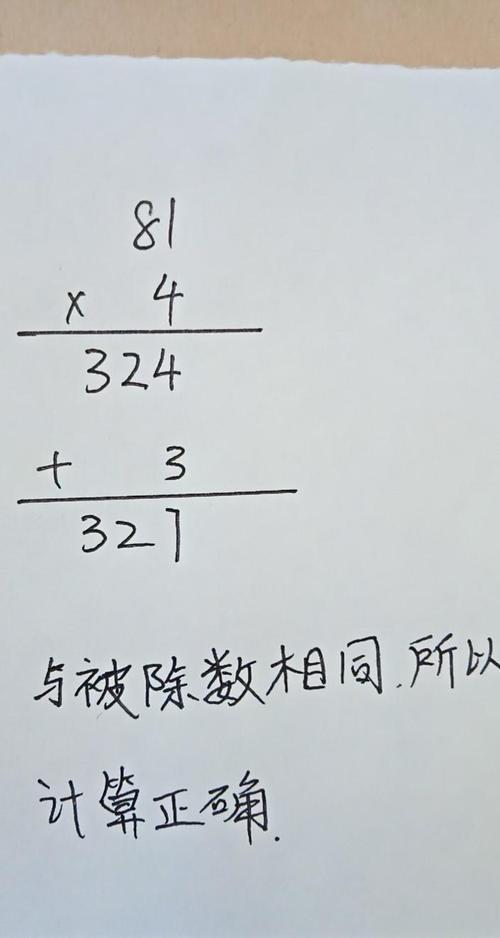 81
× 4
324
+ 3
327
与被除数相同.所以
计算正确.